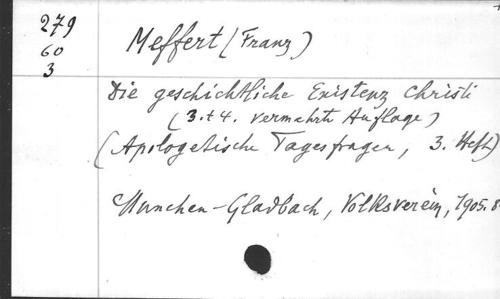 279
60
3
Meffert (Franz)
Die geschichtliche Existenz Christi
(3. + 4. vermehrte Auflage)
(Apologetische Tagesfragen, 3. Heft)
Munchen-Gladbach, Volksverein, 1905. 8